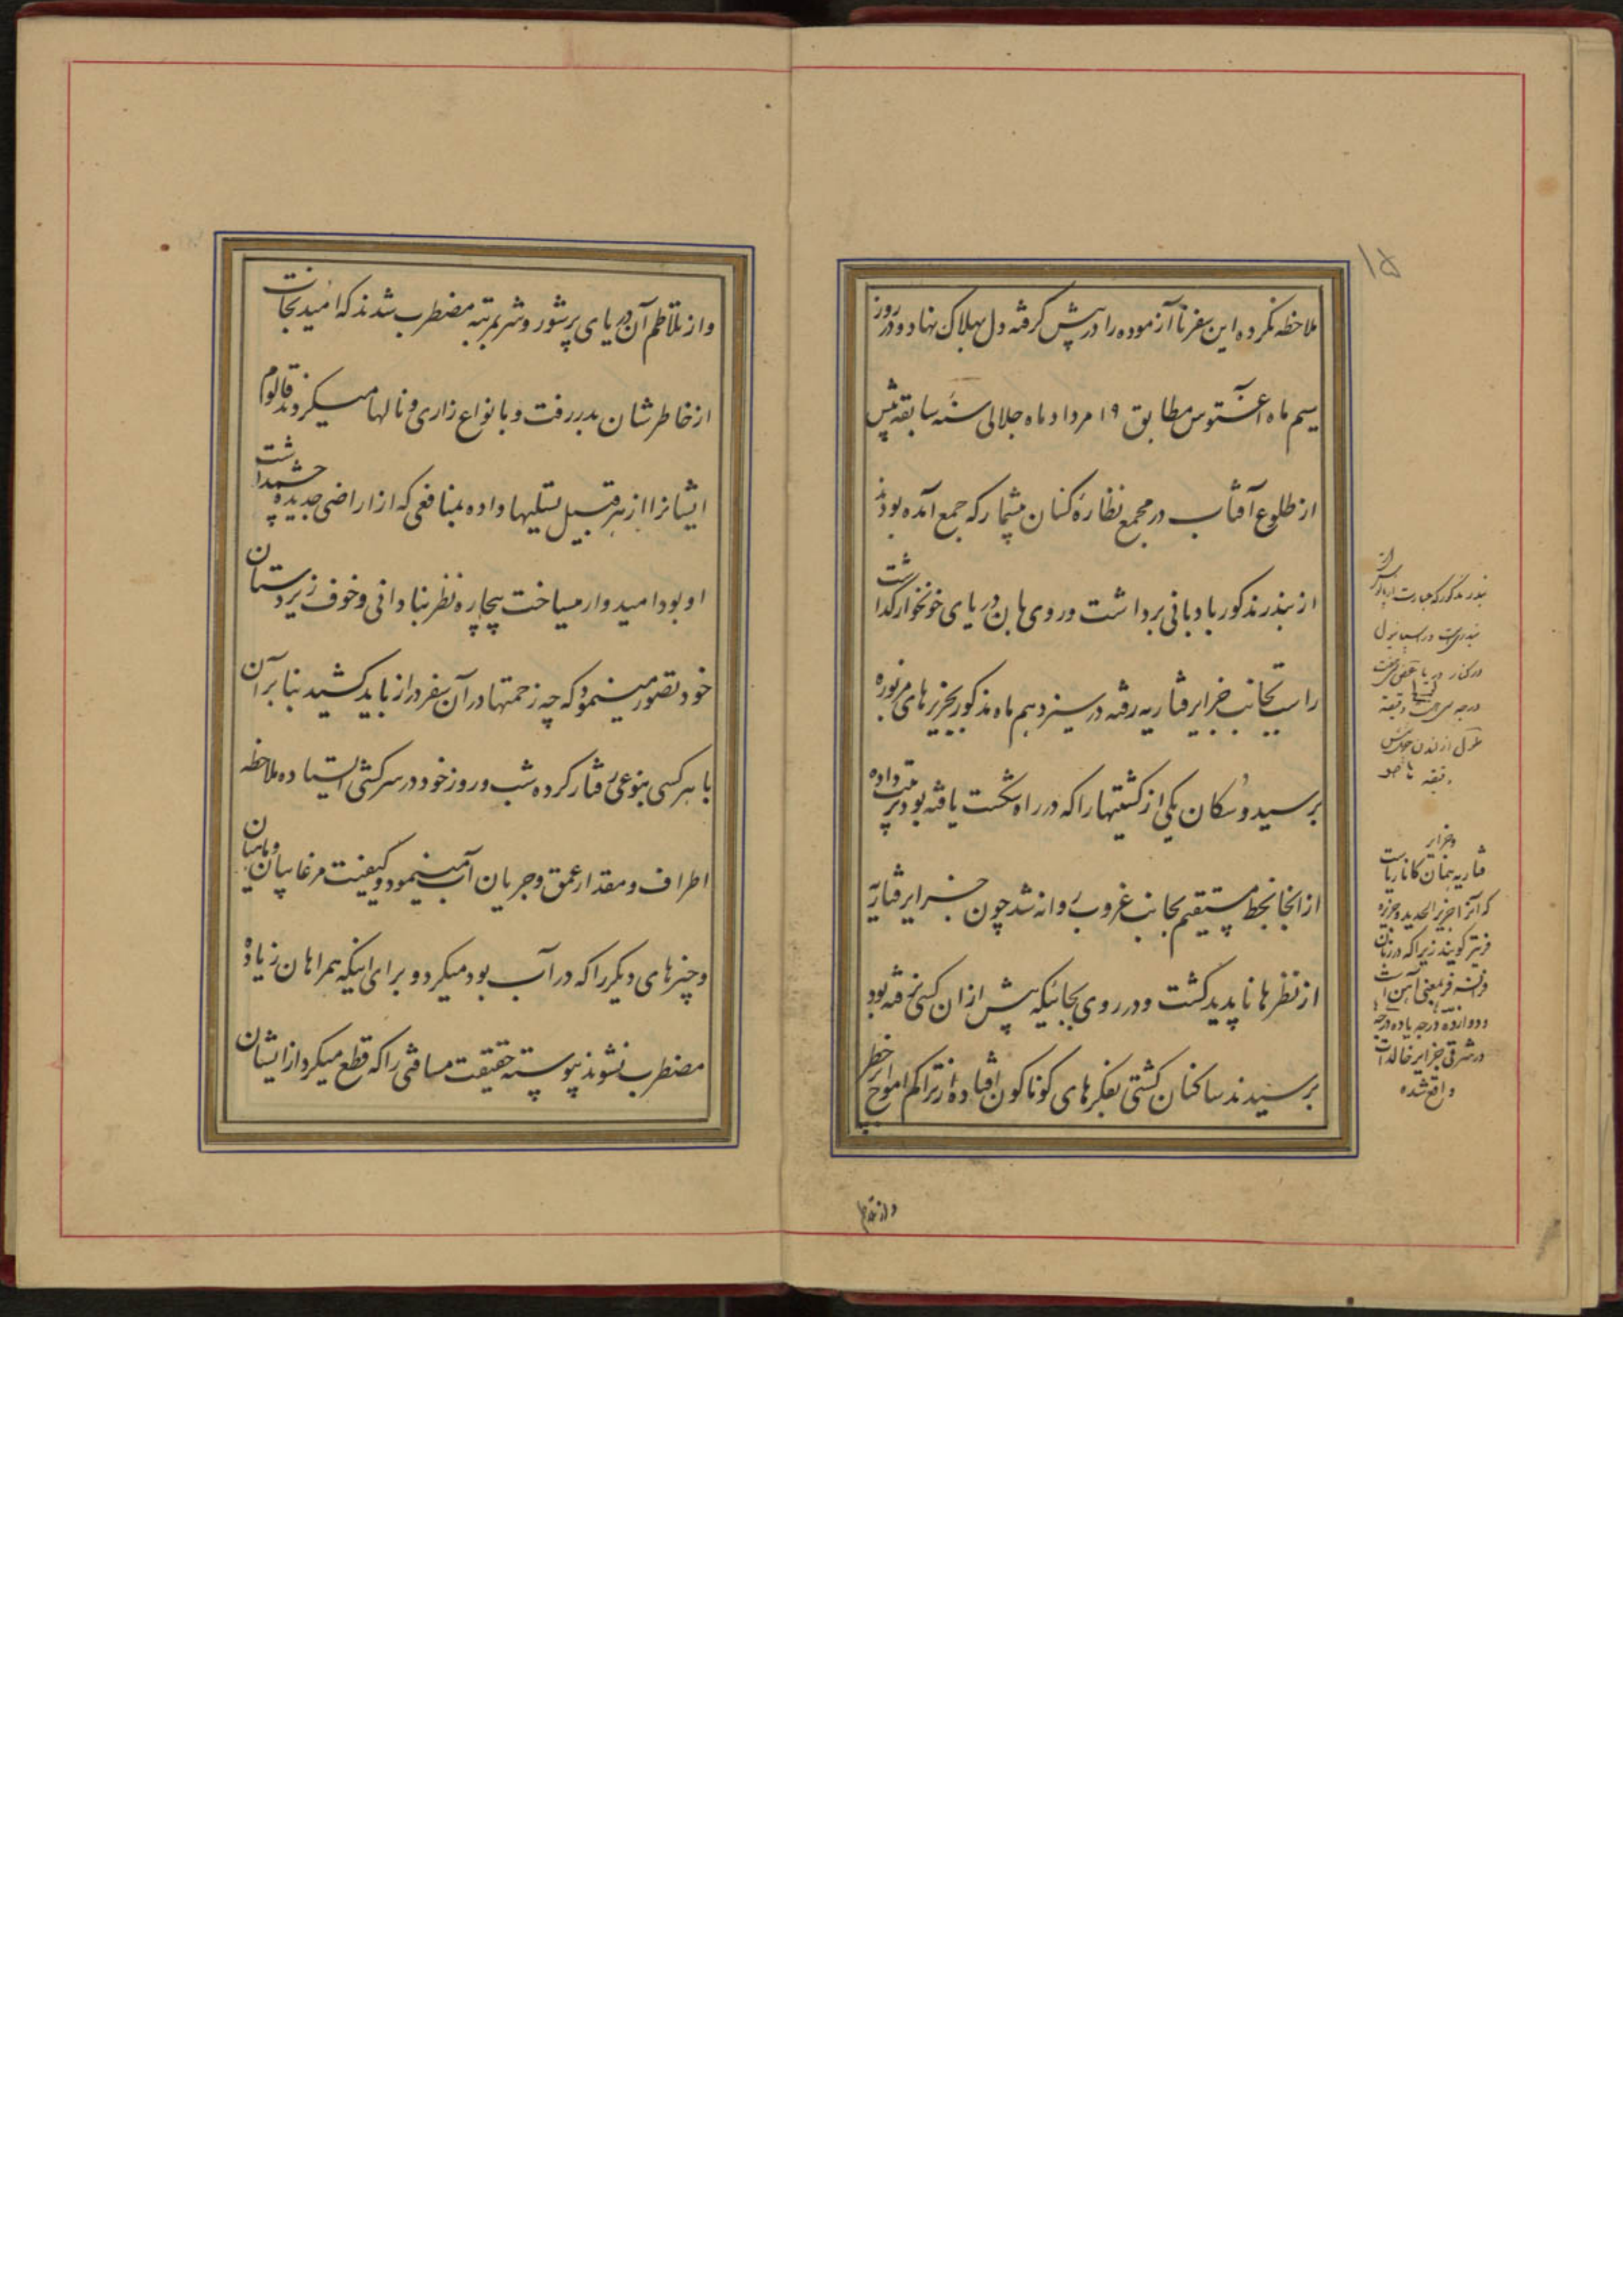 ۱۵
ملاحظه نکرده این سفر ناآزموده را در پیش گرفته دل بهلاک نهاد و در روز
سیم ماه اغستوس مطابق ۱۹ مرداد ماه جلالی سنهٔ سابقه پیش
از طلوع آفتاب در مجمع نظاره کنان بیشمار که جمع آمده بودند
از بندر مذکور بادبانی برداشت و روی بان دریای خونخوار گذاشت
راست بجانب جزایر قناریه رفته در سیزدهم ماه مذکور بجزیرهای مزبوره
برسید و سکان یکی از کشتیها را که در راه شکست یافته بود ترتیب داده
از انجا بخط مستقیم بجانب غروب روانه شد چون جزایر قناریه
از نظرها ناپدید گشت و در روی بجائیکه پیش ازان کسی نرفته بود
برسیدند ساکنان کشتی بفکرهای کوناکون افتاده از تراکم امواج پر خطر
بندر مذکور که عبارت از
بندریست در اسپانیول
در کنار دریا عرض
درجه دقیقه
طول از لندن
دقیقه
و جزایر
قناریه همان کاناریاست
که آنرا جزیر الحدید و جزیره
فریتر کویند زیرا که در زبان
فرانسه فر بمعنی آهن است
و دوازده درجه یا ده درجه
در شرقی جزایر خالدات
واقع شده
و از تلاطم
و از تلاطم آن دریای پرشور و شر بمرتبه مضطرب شدند که امید نجات
از خاطرشان بدر رفت و بانواع زاری و نالها میکردند قالوم
ایشانرا از هر قبیل تسلیها داده بمنافعی که از اراضی جدیده چشمداشت
او بود امیدوار میساخت بیچاره نظر بنادانی و خوف زیردستان
خود تصور مینمود که چه زحمتها در آن سفر دراز باید کشید بنا بر آن
با هر کسی بنوعی رفتار کرده شب و روز خود در سر کشتی ایستاده ملاحظه
اطراف و مقدار عمق و جریان آب مینمود و کیفیت مرغابیان و ماهیان
و چیزهای دیگر را که در آب بود میکرد و برای اینکه همراهان زیاده
مضطرب نشوند پیوسته حقیقت مسافتی را که قطع میکرد از ایشان